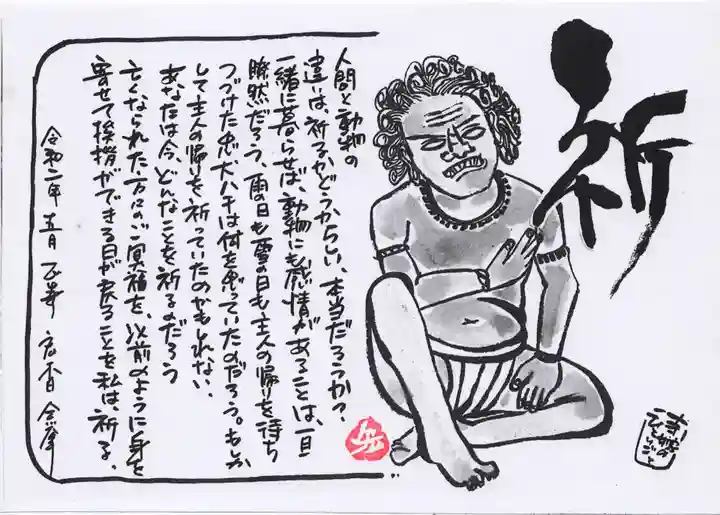 祈
人間と動物の
違いは、祈るかどうからしい、本当だろうか？
一緒に暮らせば、動物にも感情があることは、一目
瞭然だろう、雨の日も雪の日も主人の帰りを待ち
つづけた忠犬ハチは何を思っていたのだろう。もしか
して主人の帰りを祈っていたのかもしれない、
あなたは今、どんなことを祈るのだろう
亡くなられた方々のご冥福を、以前のように身を
寄せて挨拶ができる日が来ることを私は、祈る、
令和二年 五月
ひとりごと